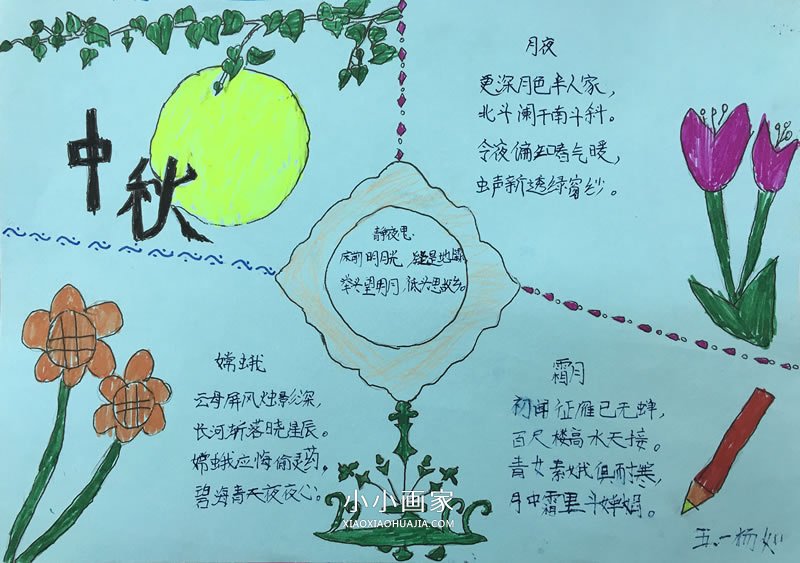 中秋
月夜
更深月色半人家,
北斗阑干南斗斜。
今夜偏知春气暖,
虫声新透绿窗纱。
静夜思.
床前明月光,疑是地霜
举头望明月,低头思故乡。
嫦娥
云母屏风烛影深,
长河渐落晓星辰。
嫦娥应悔偷灵药,
碧海青天夜夜心。
霜月
初闻征雁已无蝉,
百尺楼高水天接。
青女素娥俱耐寒,
月中霜里斗婵娟。
五.一杨
小小画家
XIAOXIAOHUAJIA.COM